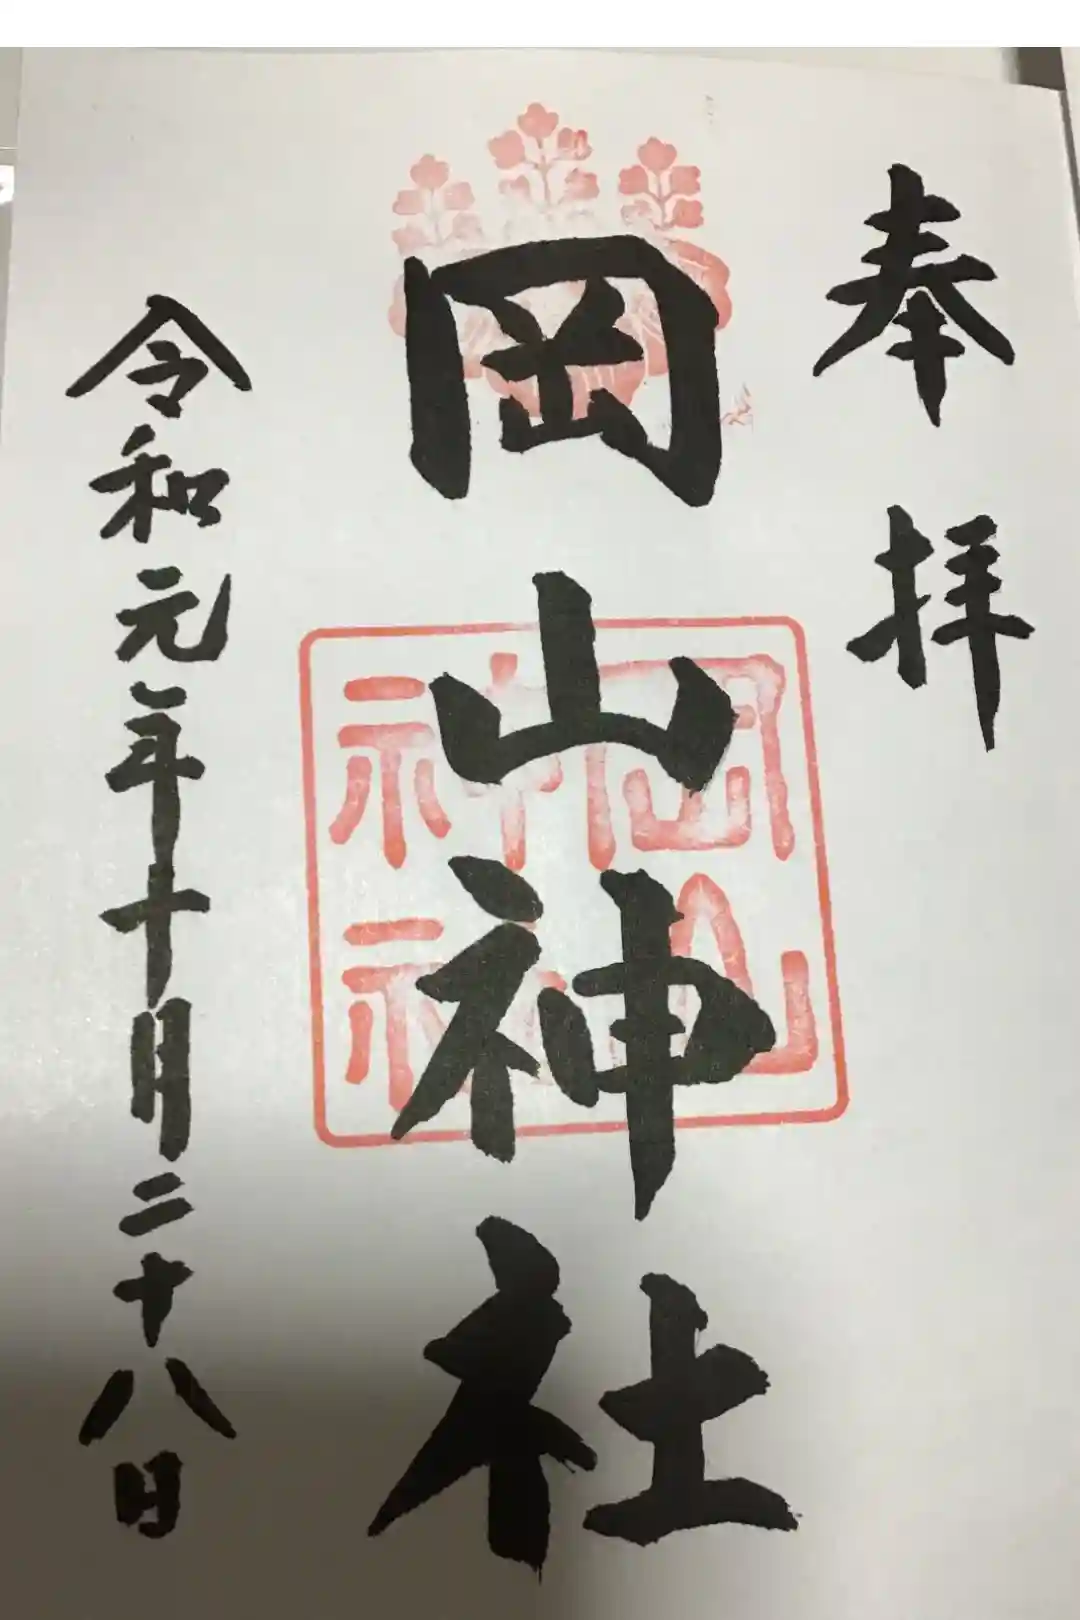 奉拝
岡山神社
岡山
神社
令和元年十月二十八日